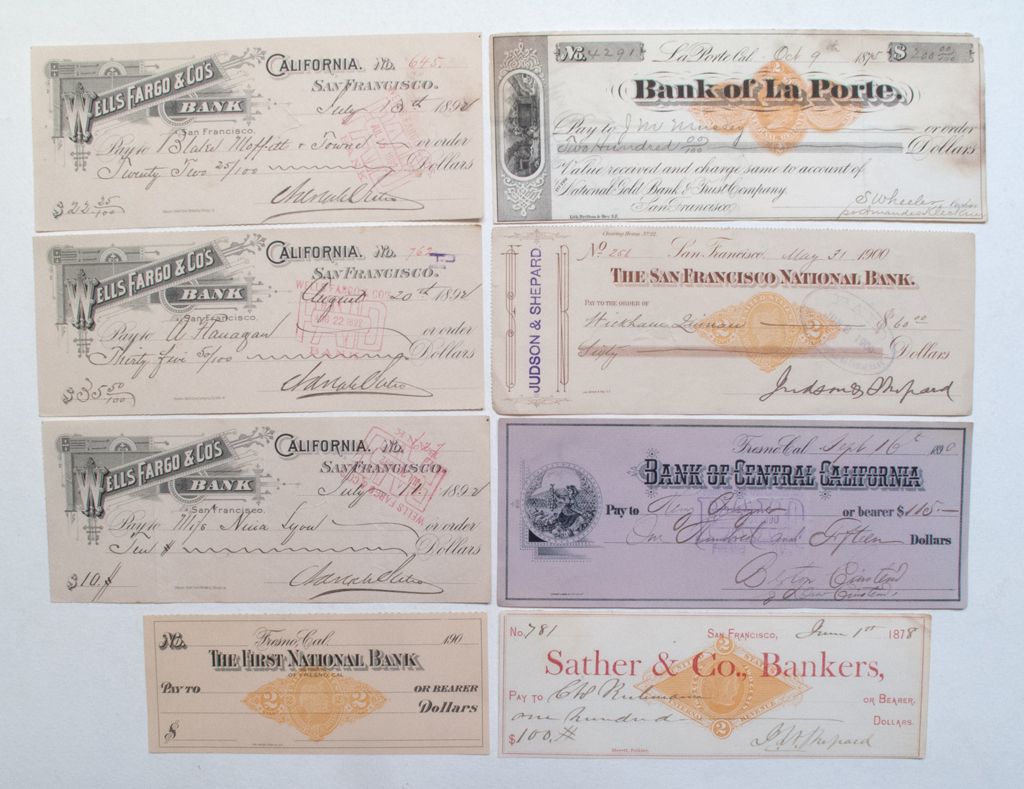 WELLS FARGO & CO'S
BANK
San Francisco.
CALIFORNIA. No. 645
SAN FRANCISCO.
July 13th 1892
Pay to Blake Moffitt & Towne or order
Twenty Two 25/100 Dollars
$22 25/100
WELLS FARGO & CO'S
BANK
San Francisco.
CALIFORNIA. No. 762
SAN FRANCISCO.
August 20th 1892
Pay to W Flanagan or order
Thirty five 50/100 Dollars
$35 50/100
WELLS FARGO & CO'S
PAID
BANK
WELLS FARGO & CO'S
BANK
San Francisco.
CALIFORNIA. No.
SAN FRANCISCO.
July 1892
Pay to Miss Nina Lyon or order
Ten $ Dollars
$10.
WELLS FARGO & CO'S
BANK
No.
Fresno, Cal. 190
THE FIRST NATIONAL BANK
OF FRESNO, CAL.
PAY TO OR BEARER
Dollars
$
No. 4291 La Porte Cal. Oct 9th 1875 $200 00/100
Bank of La Porte.
Pay to J M or order
Two Hundred 00/100 Dollars
Value received and charge same to account of
National Gold Bank & Trust Company,
San Francisco.
S Wheeler Cashier
Clearing House No 22.
JUDSON & SHEPARD
No 256 San Francisco, May 31 1900
THE SAN FRANCISCO NATIONAL BANK.
PAY TO THE ORDER OF
$60 00
Sixty Dollars
Judson & Shepard
Fresno, Cal. Sept 16th 1890
BANK OF CENTRAL CALIFORNIA
Pay to or bearer $115
One Hundred and Fifteen Dollars
No. 781 SAN FRANCISCO, June 1st 1878
Sather & Co., Bankers,
PAY TO OR BEARER,
one hundred DOLLARS.
$100.
J. W. Shepard